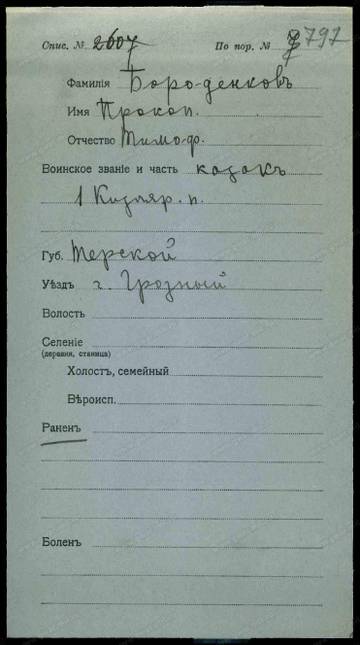 Спис. № 2607 По пор. № 797
Фамилія Бороденковъ
Имя Прокоп.
Отчество Тимоф.
Воинское званіе и часть казакъ
1 Кизляр. п.
Губ. Терской
Уѣздъ г. Грозный
Волость
Селеніе
(деревня, станица)
Холостъ, семейный
Вѣроисп.
Раненъ
Боленъ